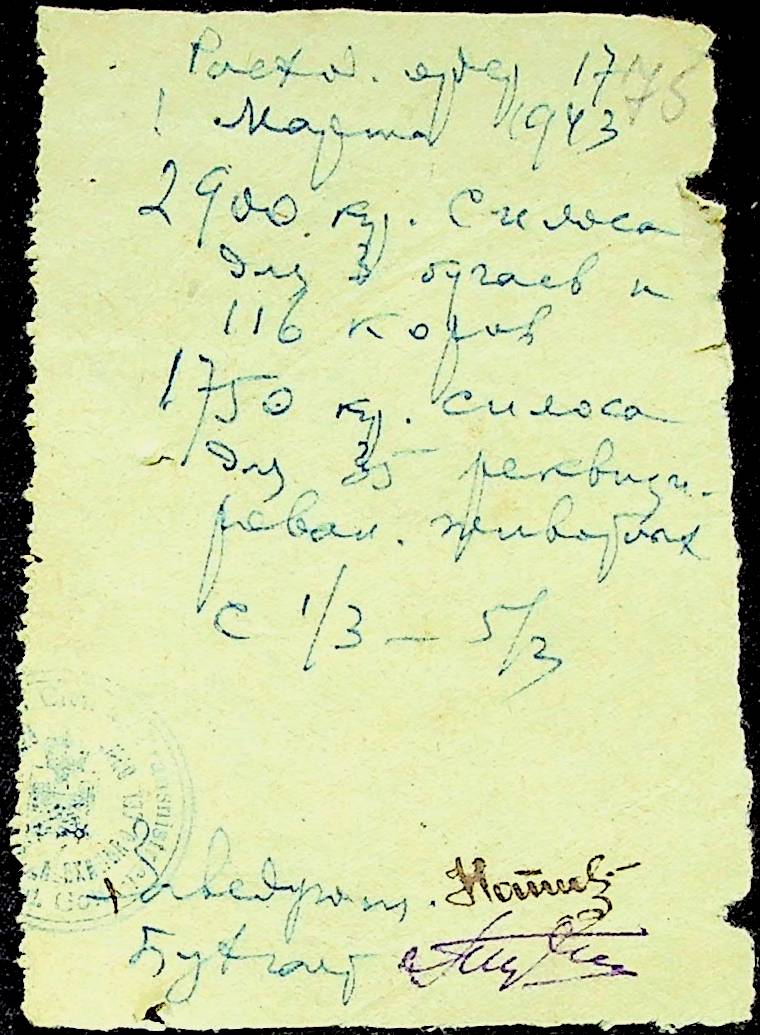 Расход. ордер 17
175
1 Марта 1943
2900 кгр. силоса
для 3 бугаев и
116 коров
1750 кгр. силоса
для 35 реквизи-
рован. животных
с 1/3 — 5/3
Бухгалт